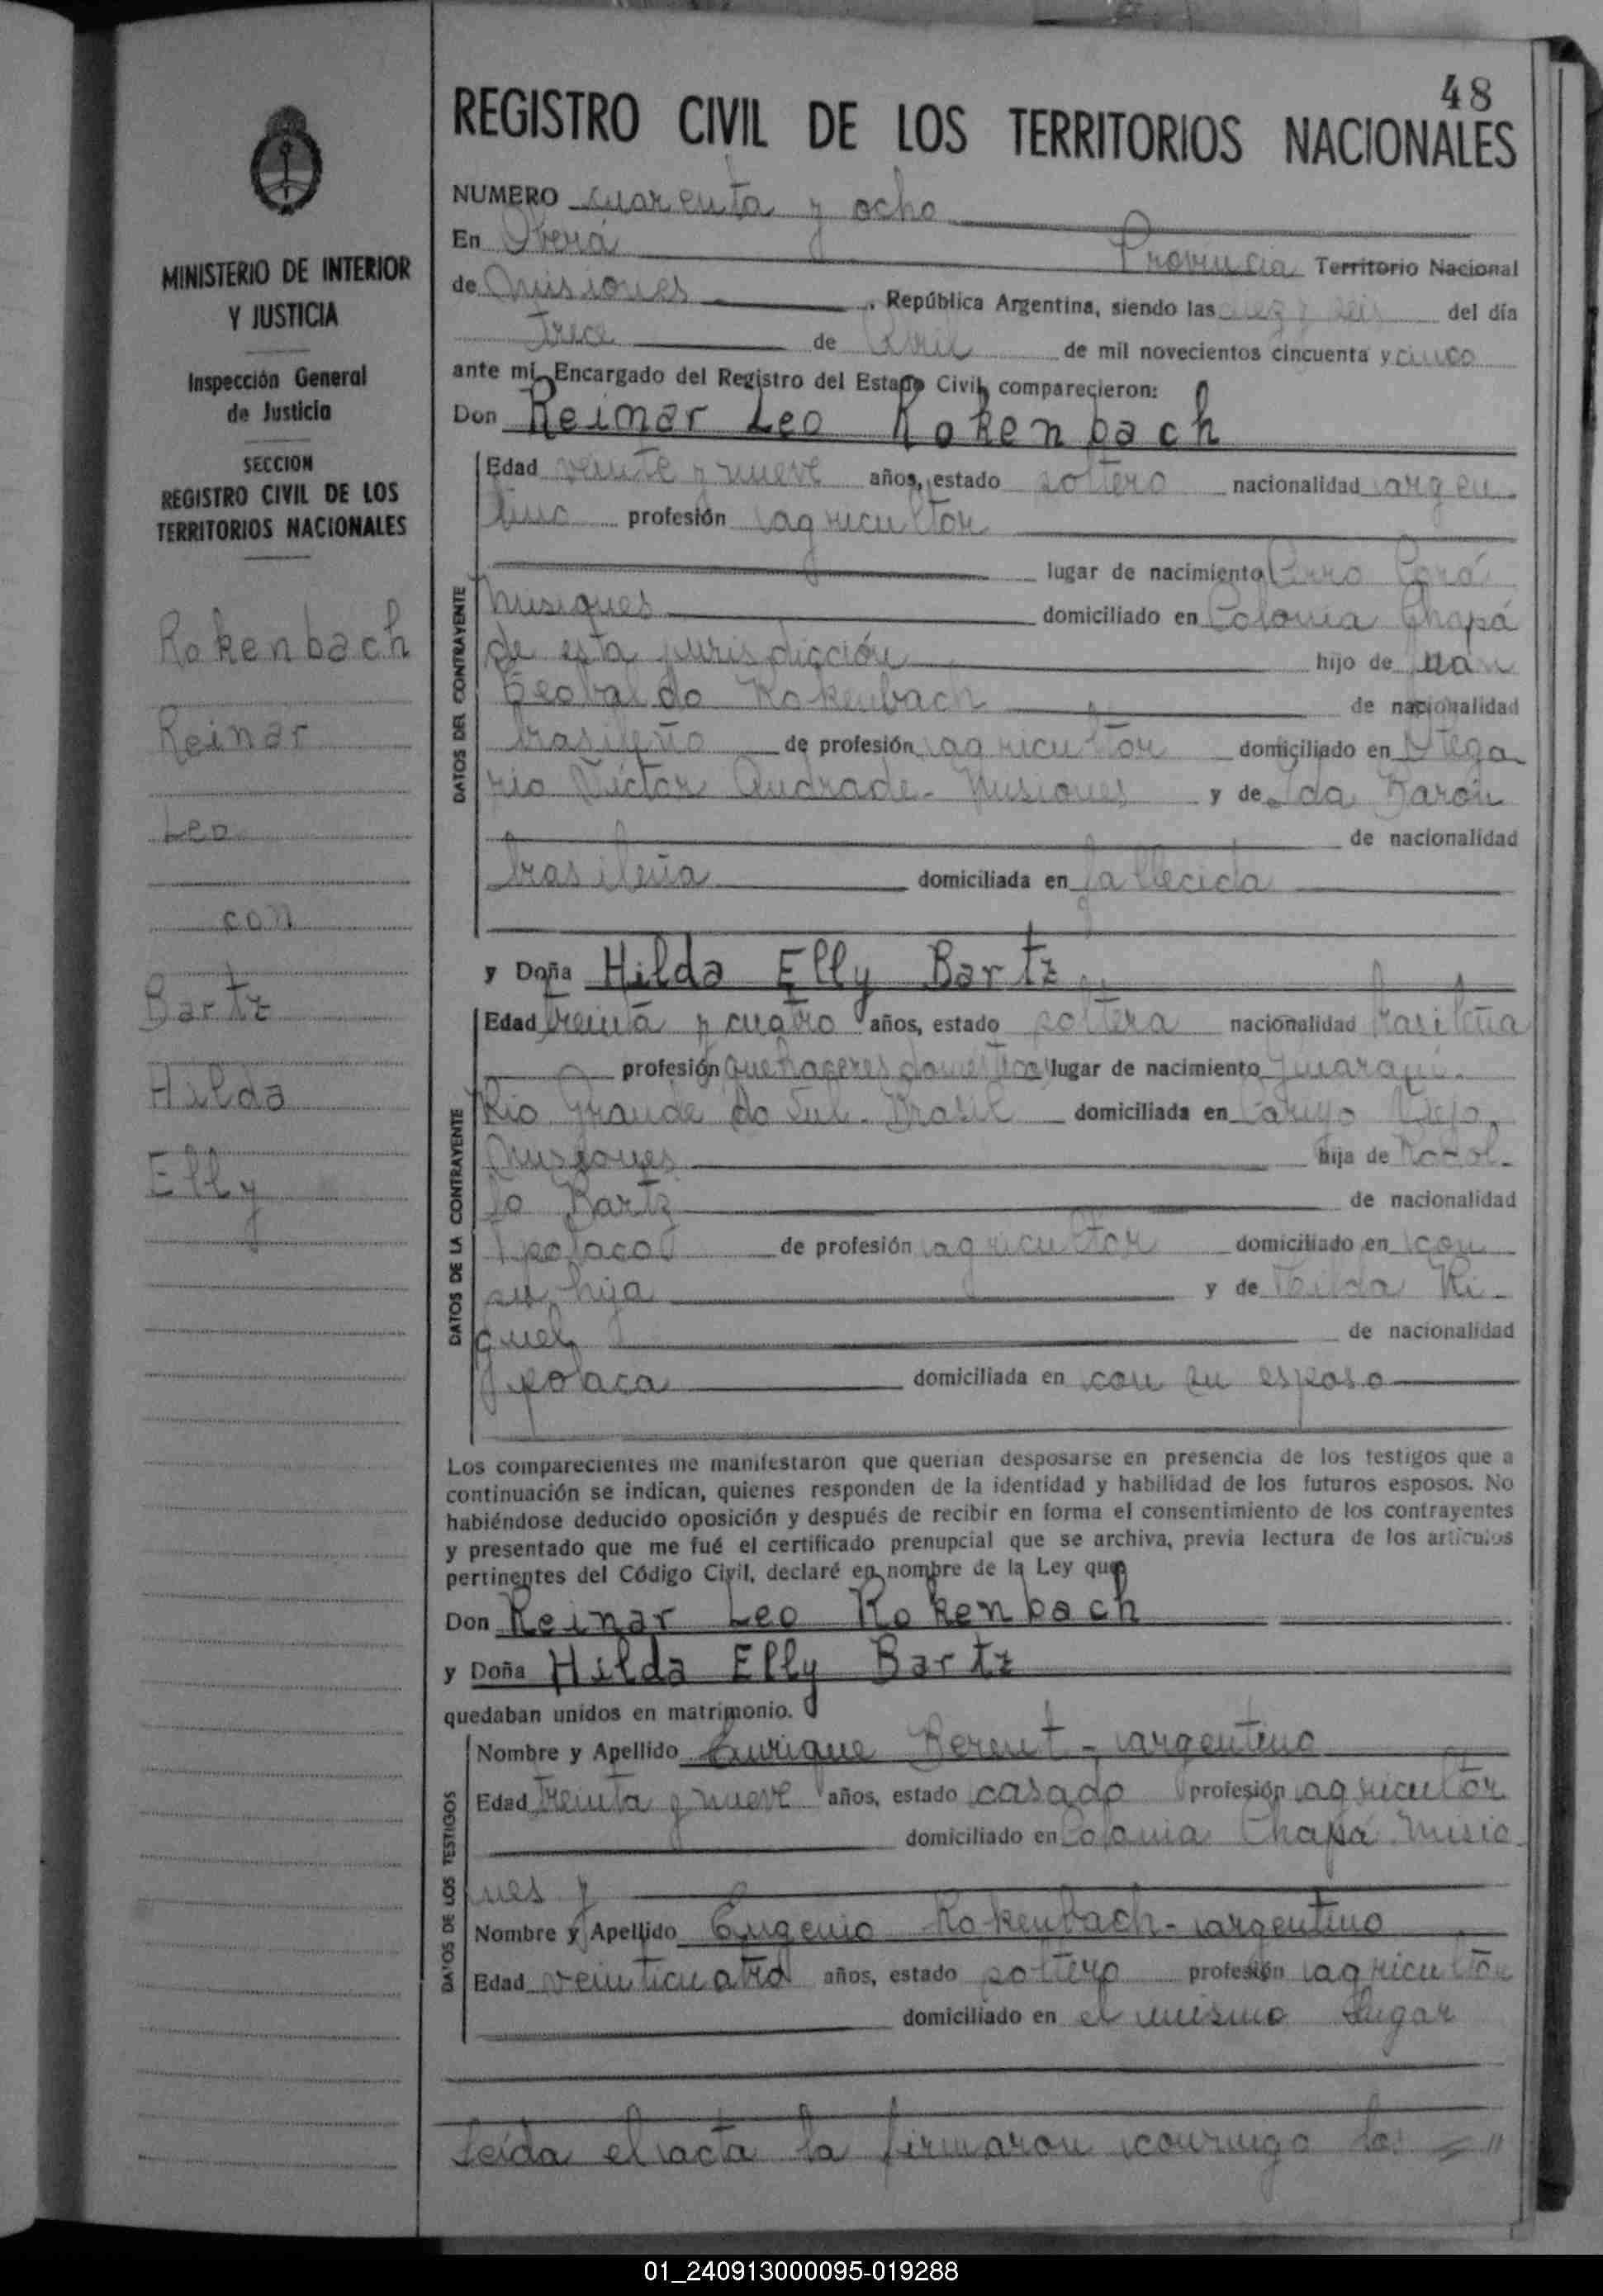 48
REGISTRO CIVIL DE LOS TERRITORIOS NACIONALES
MINISTERIO DE INTERIOR
Y JUSTICIA
Inspección General
de Justicia
SECCION
REGISTRO CIVIL DE LOS
TERRITORIOS NACIONALES
Rokenbach
Reinar
Leo
con
Bartz
Hilda
Elly
NUMERO cuarenta y ocho
En Oberá Provincia Territorio Nacional
de Misiones, República Argentina, siendo las diez y seis del día
Trece de Abril de mil novecientos cincuenta y cinco
ante mí, Encargado del Registro del Estado Civil, comparecieron:
Don Reinar Leo Rokenbach
DATOS DEL CONTRAYENTE
Edad veinte y nueve años, estado soltero nacionalidad argen
tino profesión agricultor
lugar de nacimiento Cerro Corá
Misiones domiciliado en Colonia Chapá
de esta jurisdicción hijo de Juan
Teobaldo Rokenbach de nacionalidad
brasileño de profesión agricultor domiciliado en Olega
rio Víctor Andrade - Misiones y de Ida Barón
de nacionalidad
brasileña domiciliada en fallecida
y Doña Hilda Elly Bartz
DATOS DE LA CONTRAYENTE
Edad treinta y cuatro años, estado soltera nacionalidad brasileña
profesión quehaceres domésticos lugar de nacimiento
Río Grande do Sul - Brasil domiciliada en Campo Viejo,
Misiones hija de Rodol-
fo Bartz de nacionalidad
polaco de profesión agricultor domiciliado en con
su hija y de Hilda Ri-
guel de nacionalidad
polaca domiciliada en con su esposo
Los comparecientes me manifestaron que querían desposarse en presencia de los testigos que a
continuación se indican, quienes responden de la identidad y habilidad de los futuros esposos. No
habiéndose deducido oposición y después de recibir en forma el consentimiento de los contrayentes
y presentado que me fué el certificado prenupcial que se archiva, previa lectura de los artículos
pertinentes del Código Civil, declaré en nombre de la Ley que
Don Reinar Leo Rokenbach
y Doña Hilda Elly Bartz
quedaban unidos en matrimonio.
DATOS DE LOS TESTIGOS
Nombre y Apellido Enrique Berent - argentino
Edad treinta y nueve años, estado casado profesión agricultor
domiciliado en Colonia Chapá Misio
nes y
Nombre y Apellido Eugenio Rokenbach - argentino
Edad veinticuatro años, estado soltero profesión agricultor
domiciliado en el mismo lugar
Leída el acta la firmaron conmigo los
01_240913000095-019288